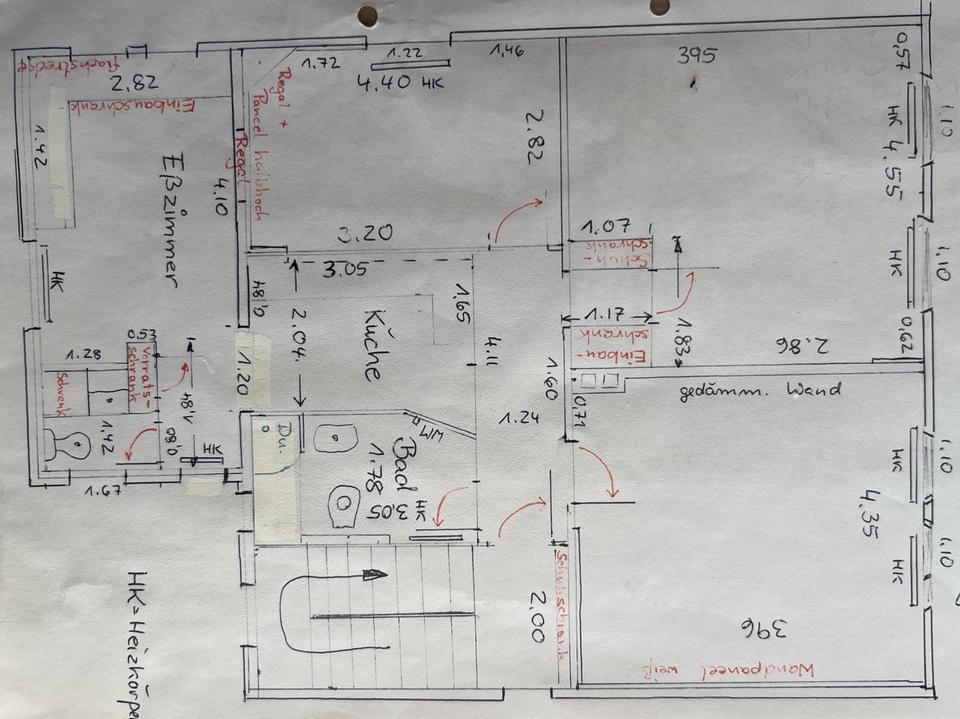 flachstrecke
2.82
Einbauschrank
1.42
Eßzimmer
4.10
HK
0.53
1.28
Vorrats-
schrank
Schrank
1.42
1.84
0.80
HK
1.67
1.72
1.22
1.46
4.40 HK
Regal +
Paneel halbhoch
Regal
2.82
3.20
3.05
0.84
2.04
Küche
1.65
4.11
1.20
1.60
1.24
Du.
WM
Bad
1.78
3.05
HK
2.00
Schuhschrank
395
0,57
HK
4.55
1.10
1.07
Schuh-
schrank
1.17
Einbau-
schrank
1.83
HK
1.10
0,62
2.86
0,71
gedämm. Wand
HK
1.10
4.35
HK
1.10
396
Wandpaneel weiß
HK = Heizkörper